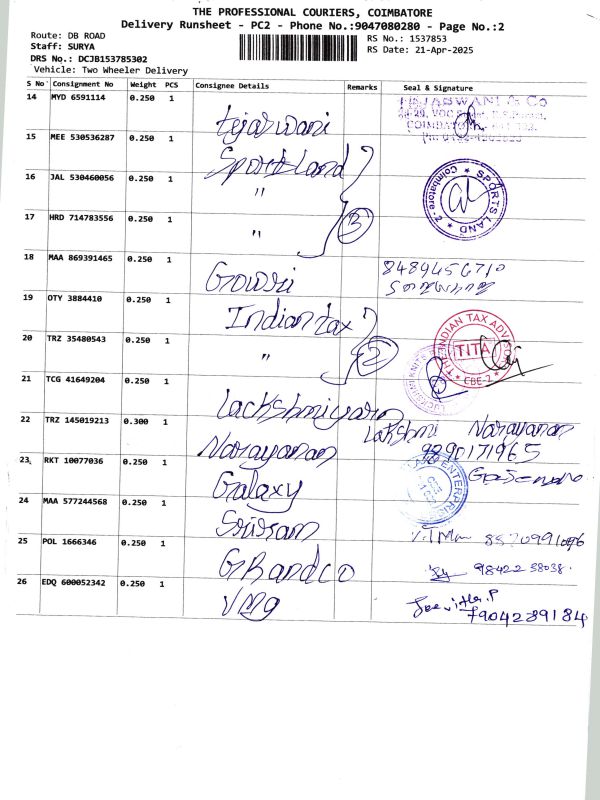 THE PROFESSIONAL COURIERS, COIMBATORE
Delivery Runsheet - PC2 - Phone No.:9047080280 - Page No.:2
Route: DB ROAD
RS No.: 1537853
Staff: SURYA
RS Date: 21-Apr-2025
DRS No.: DCJB153785302
Vehicle: Two Wheeler Delivery
S No Consignment No Weight PCS Consignee Details Remarks Seal & Signature
14 MYD 6591114 0.250 1 tejarwani
15 MEE 530536287 0.250 1 Sportsland
16 JAL 530460056 0.250 1 "
17 HRD 714783556 0.250 1 " 3
SPORTS LAND
Coimbatore - 2
18 MAA 869391465 0.250 1 Gowri 8489456710
19 OTY 3884410 0.250 1 Indian tax
20 TRZ 35480543 0.250 1 " 2
INDIAN TAX
TITA
CBE-2
21 TCG 41649204 0.250 1 Lackshmiyarn
22 TRZ 145019213 0.300 1 Narayanan Lakshmi Narayanan
9290171965
23 RKT 10077036 0.250 1 Galaxy
24 MAA 577244568 0.250 1 Sriram
25 POL 1666346 0.250 1 GRandco 98422 38038
26 EDQ 600052342 0.250 1 VMG
7904289184